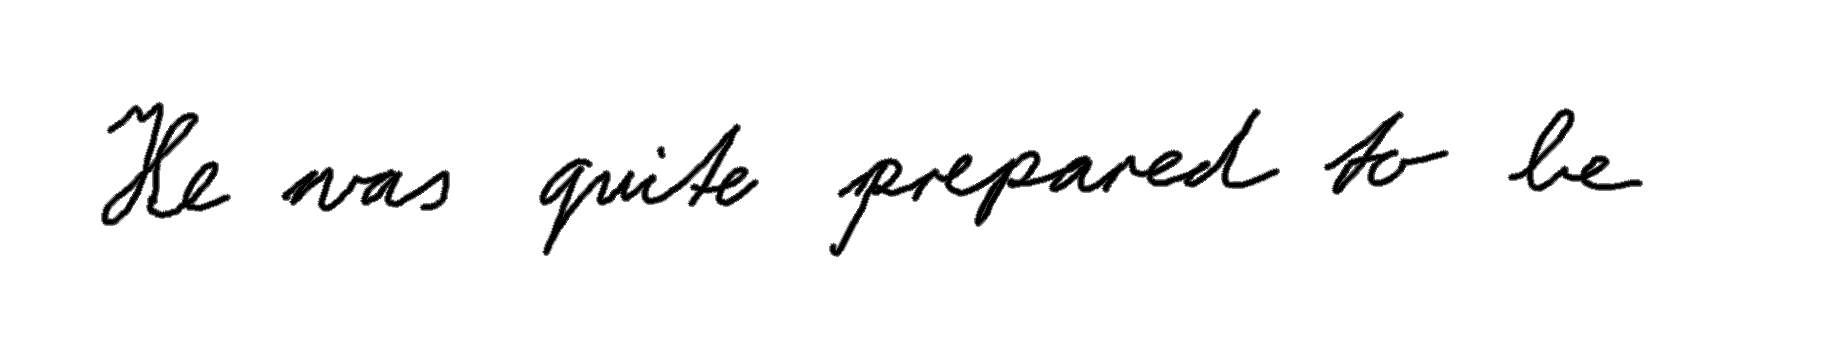 He was quite prepared to be